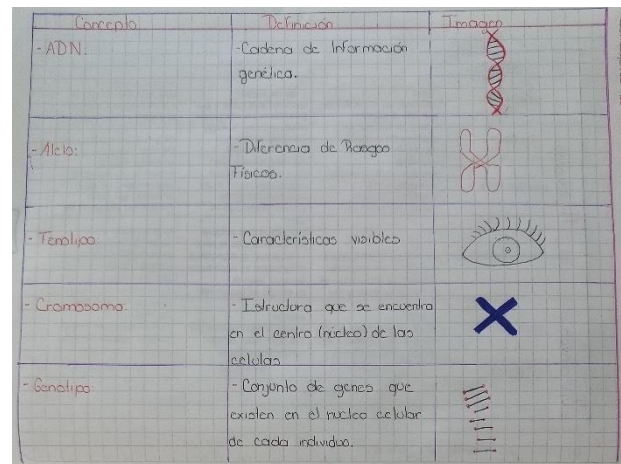 Concepto Definición Imagen
- ADN: - Cadena de Información
genética.
- Alelo: - Diferencia de Rasgos
Físicos.
- Fenotipo - Características visibles
- Cromosoma. - Estructura que se encuentra
en el centro (núcleo) de las
celulas
- Genotipo: - Conjunto de genes que
existen en el nucleo celular
de cada individuo.